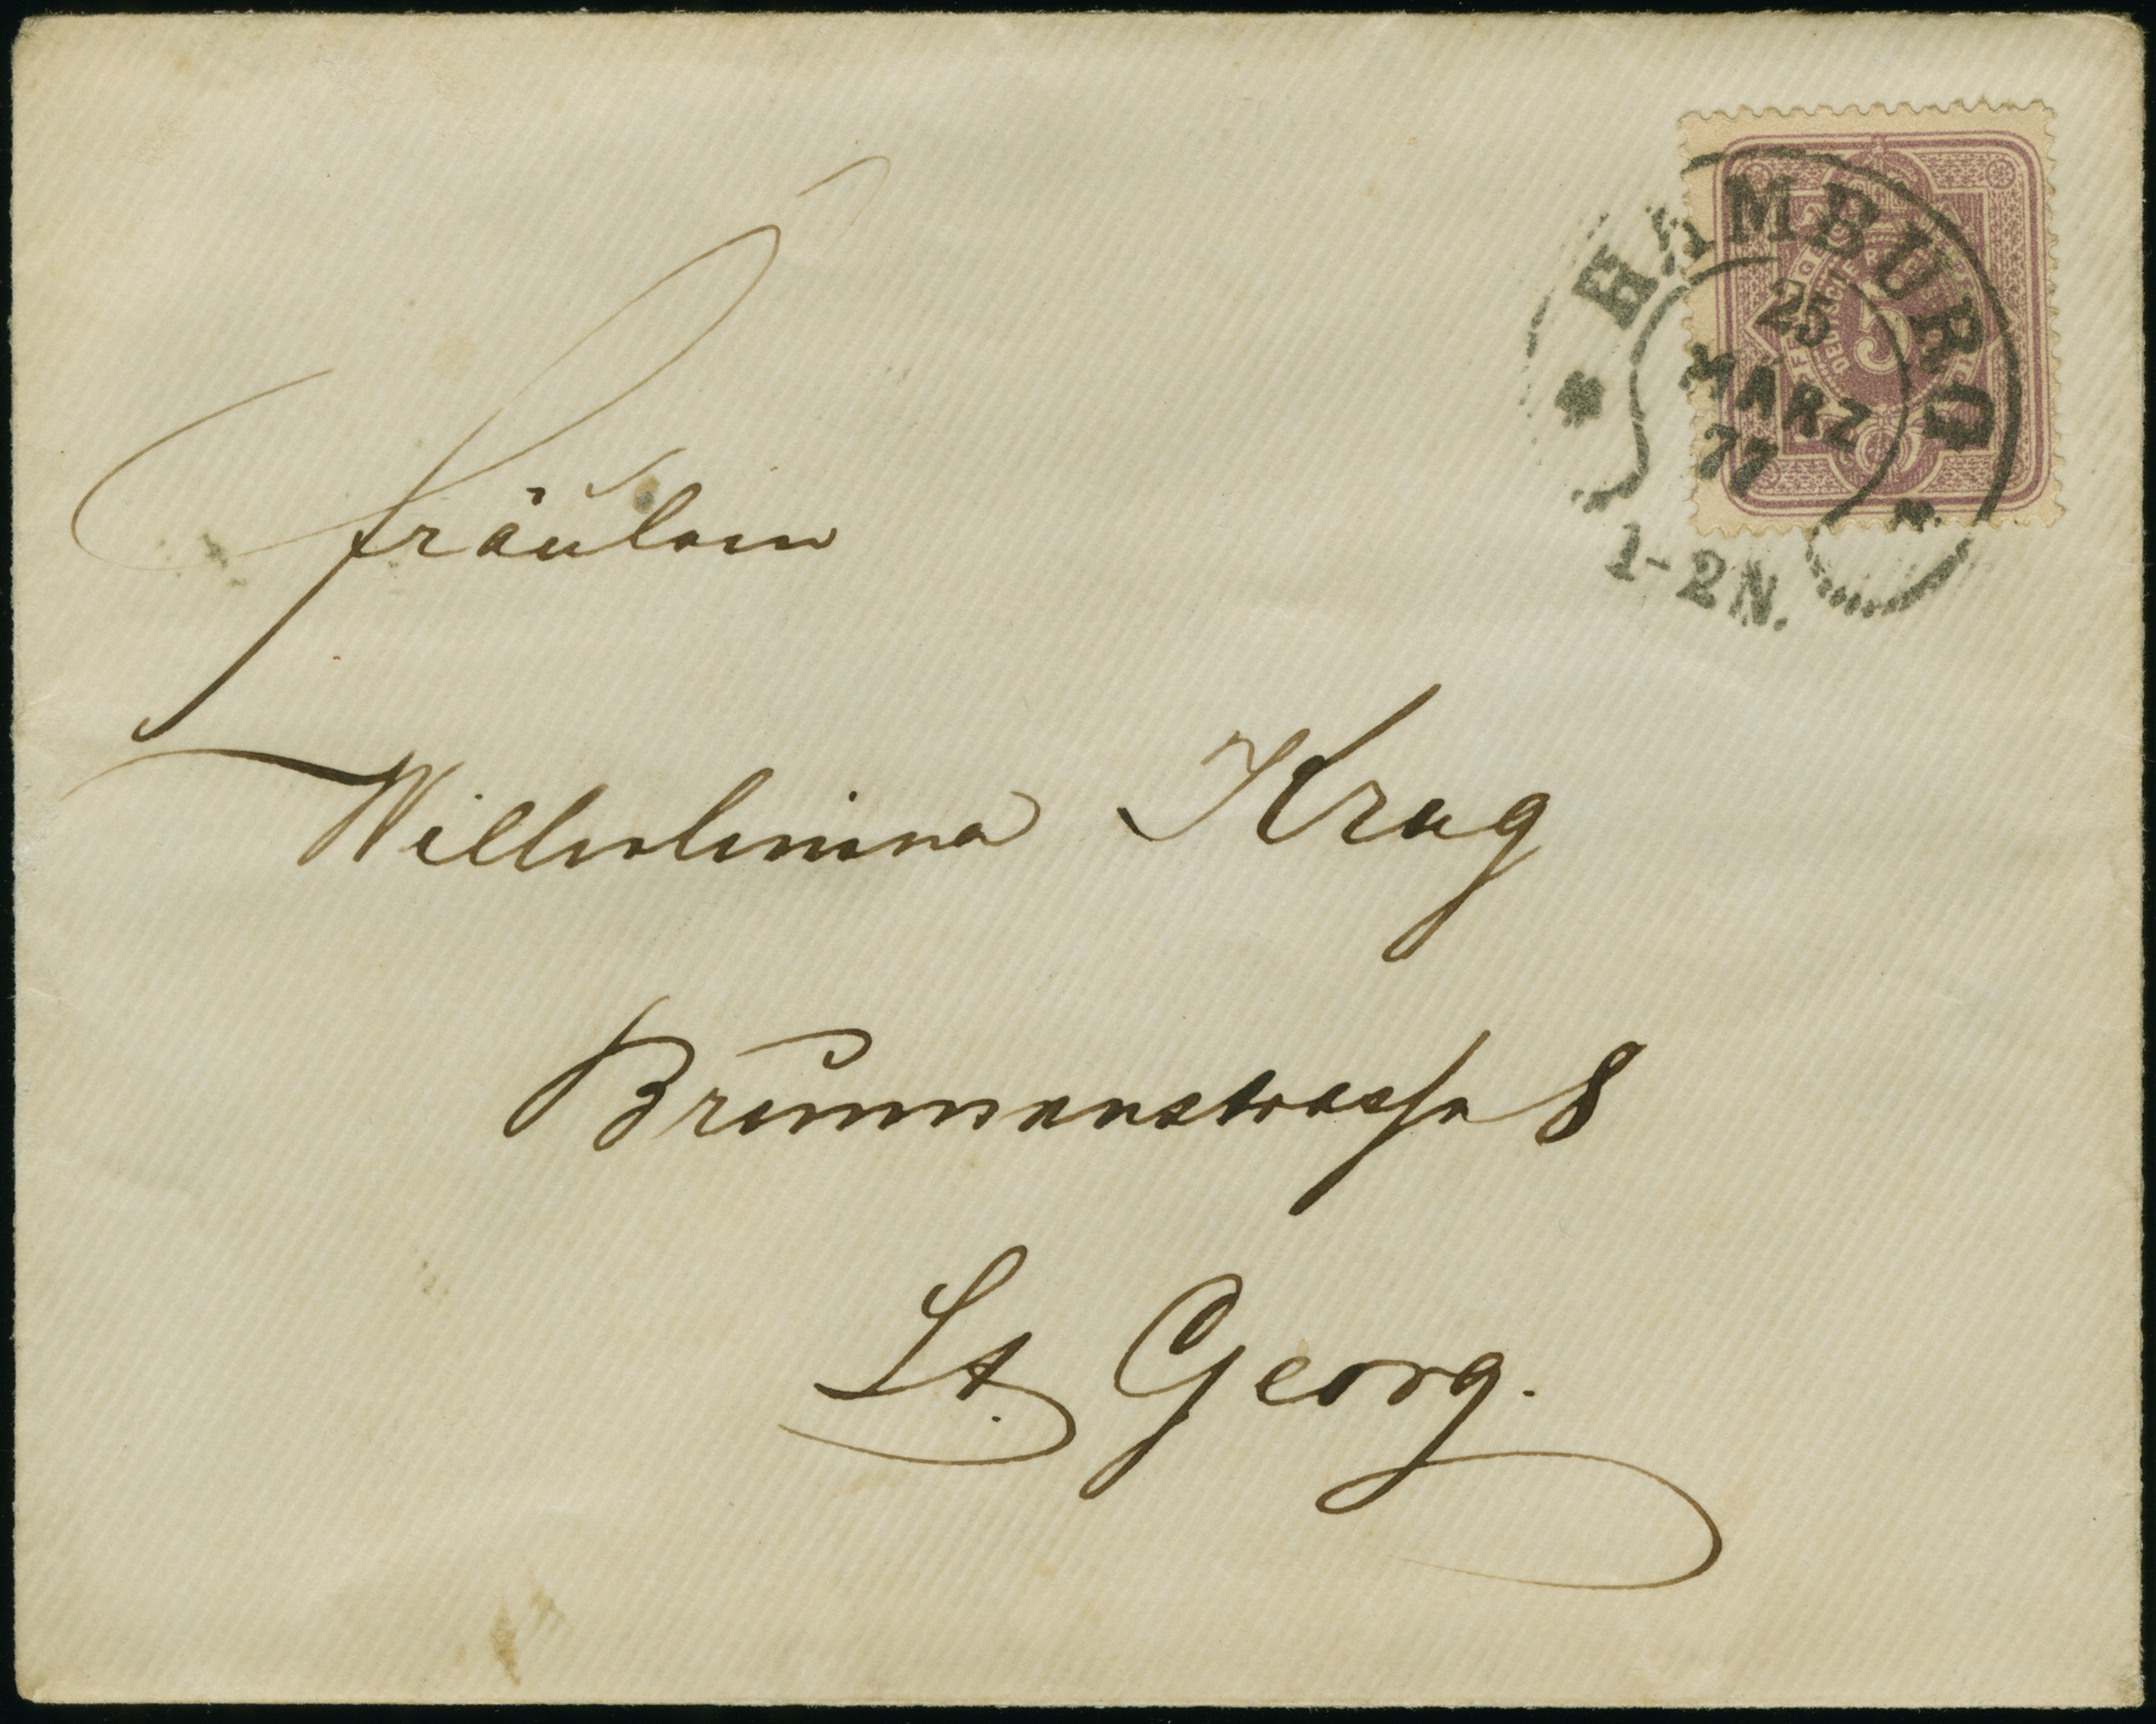 HAMBURG
25
MÄRZ
77
1-2N.
5
Fräulein
Wilhelmine Krug
Brunnenstrasse 8
St. Georg.